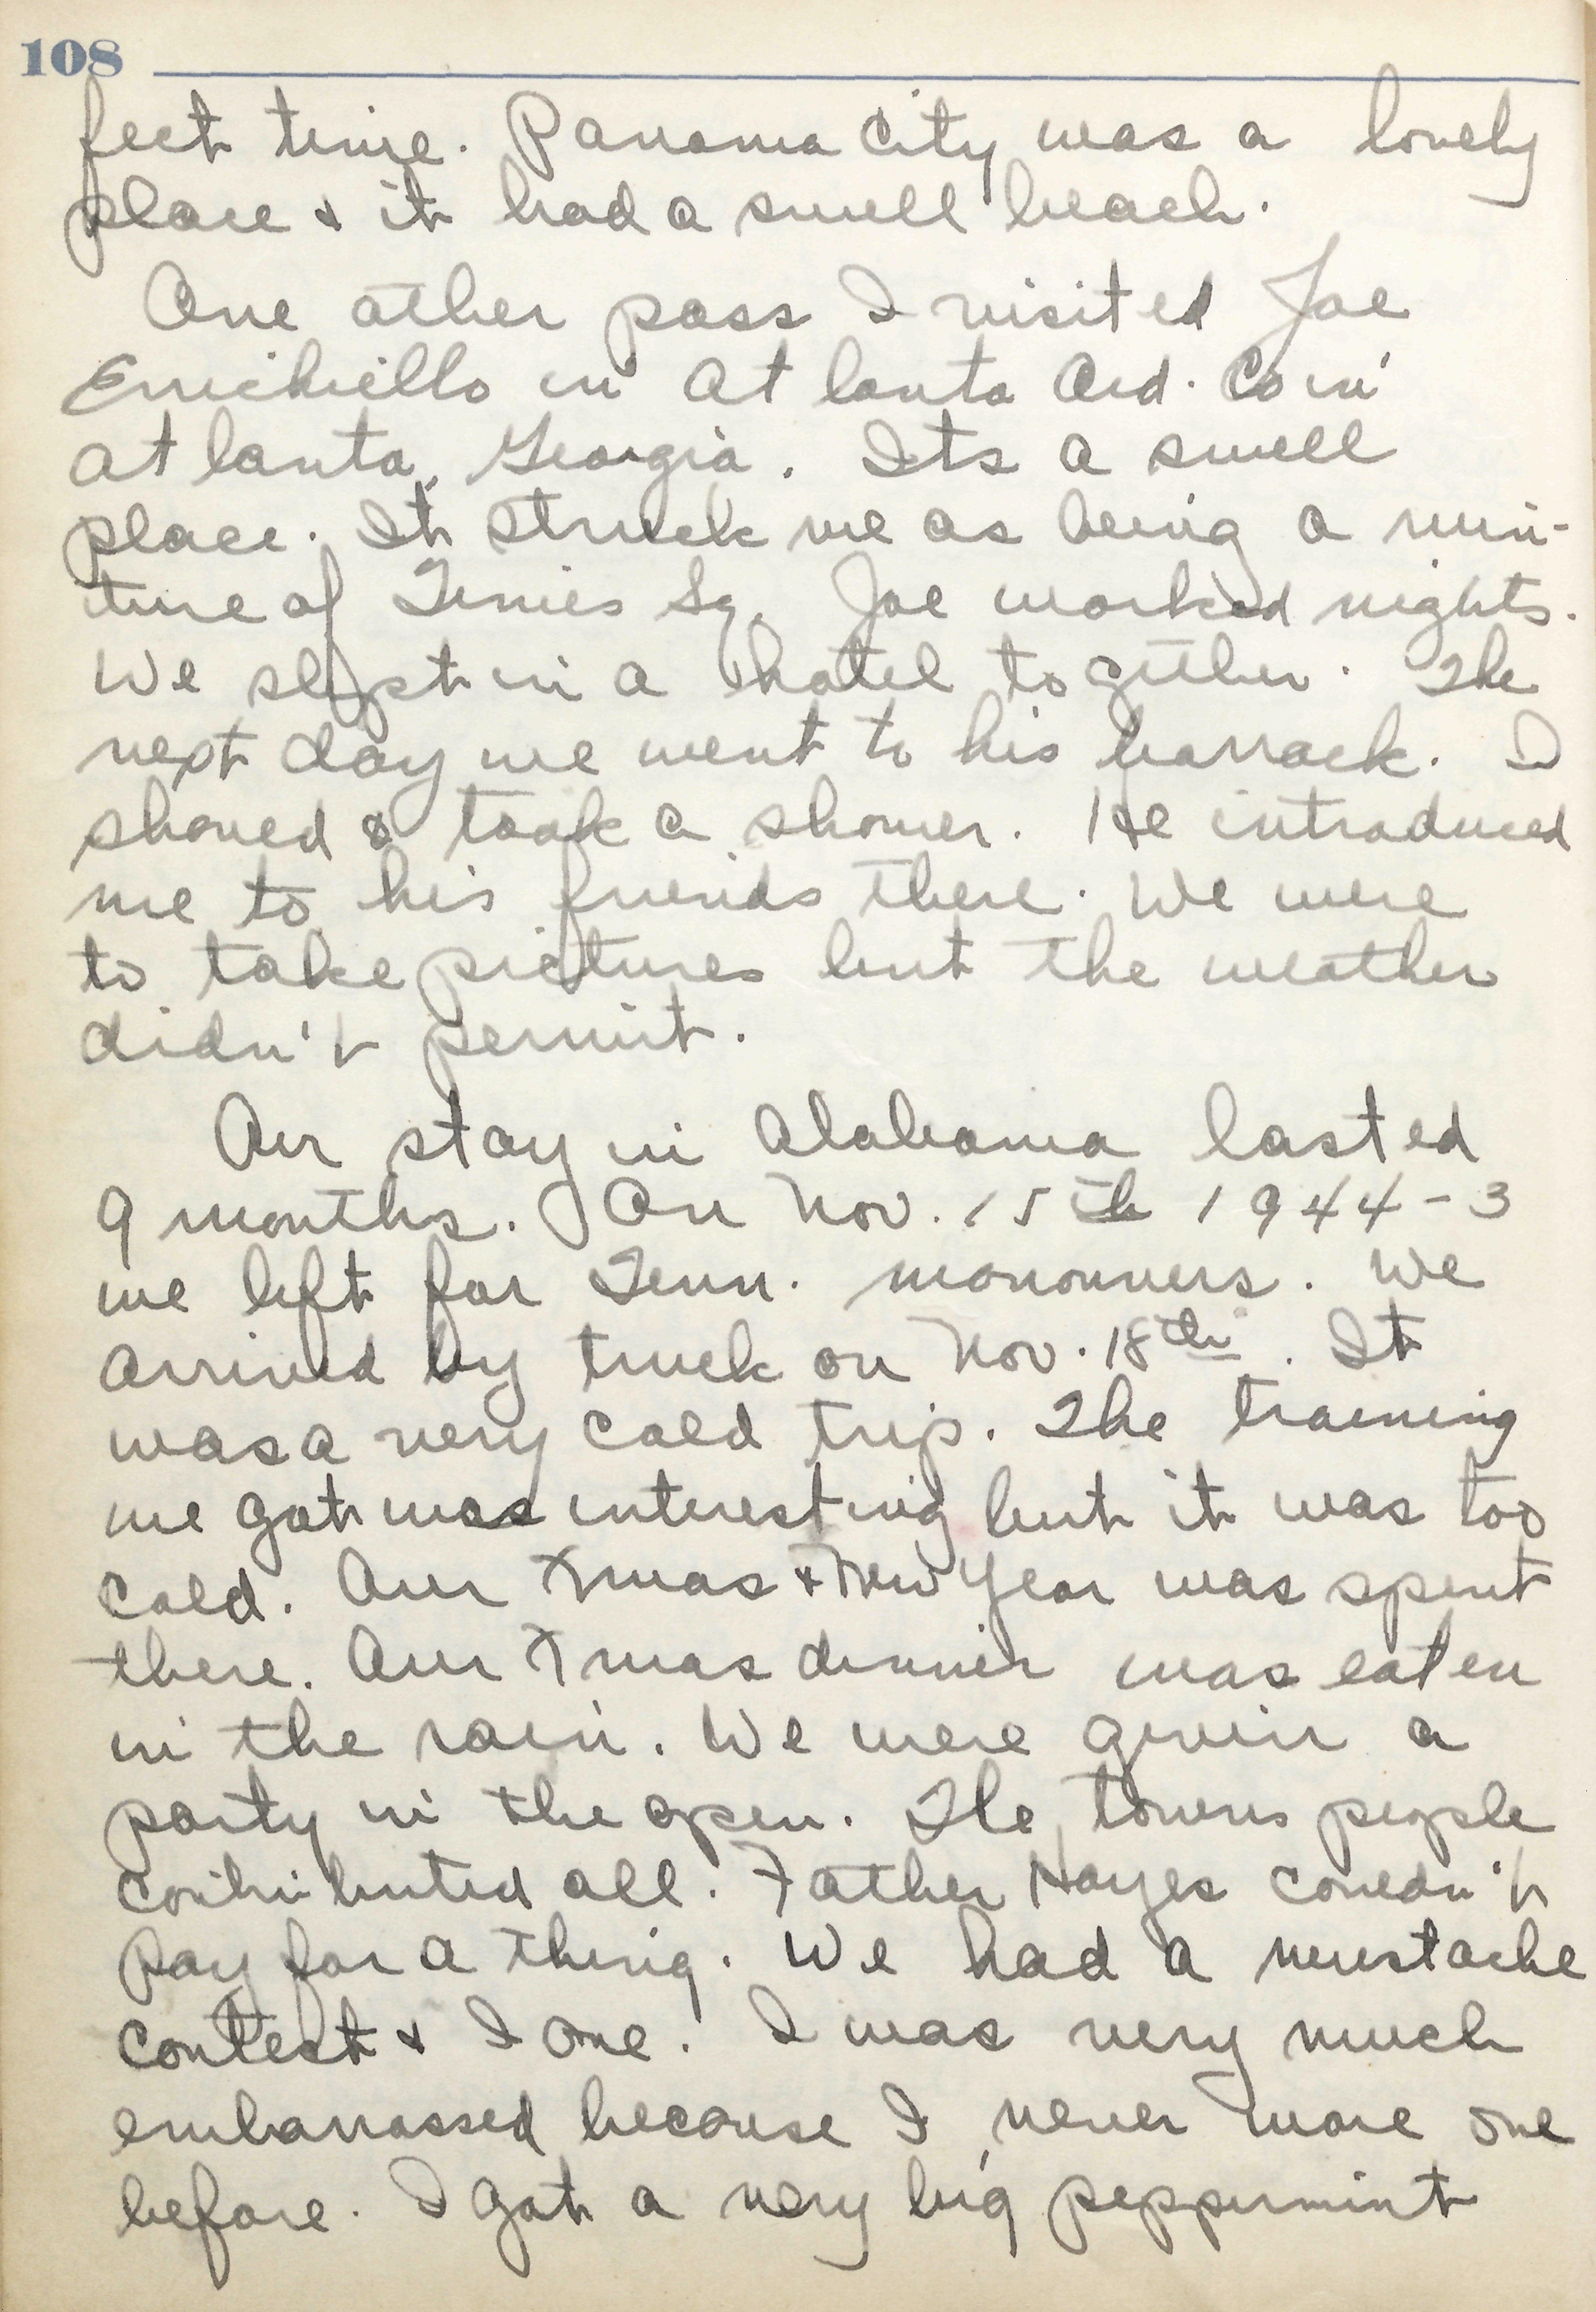 108
fect time. Panama City was a lovely
place & it had a swell beach.
One other pass I visited Joe
Errichiello in Atlanta Ord. Co in
Atlanta, Georgia. Its a swell
place. It struck me as being a min-
iture of Times Sq. Joe worked nights.
We slept in a hotel together. The
next day we went to his barrack. I
shaved & took a shower. He introduced
me to his friends there. We were
to take pictures but the weather
didn't permit.
Our stay in Alabama lasted
9 months. On Nov. 15th 1944-3
we left for Tenn. manouvers. We
arrived by truck on Nov. 18th. It
was a very cold trip. The training
we got was interesting but it was too
cold. Our Xmas & New Year was spent
there. Our Xmas dinner was eaten
in the rain. We were given a
party in the open. The towns people
contributed all. Father Hayes couldn't
pay for a thing. We had a mustache
contest & I one. I was very much
embarrassed because I never wore one
before. I got a very big peppermint